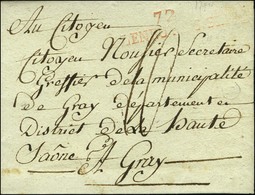 Au Citoyen
77
Citoyen Nourier Secretaire
Greffier de la municipalité
de Gray departement et
District de la haute
Saône A Gray